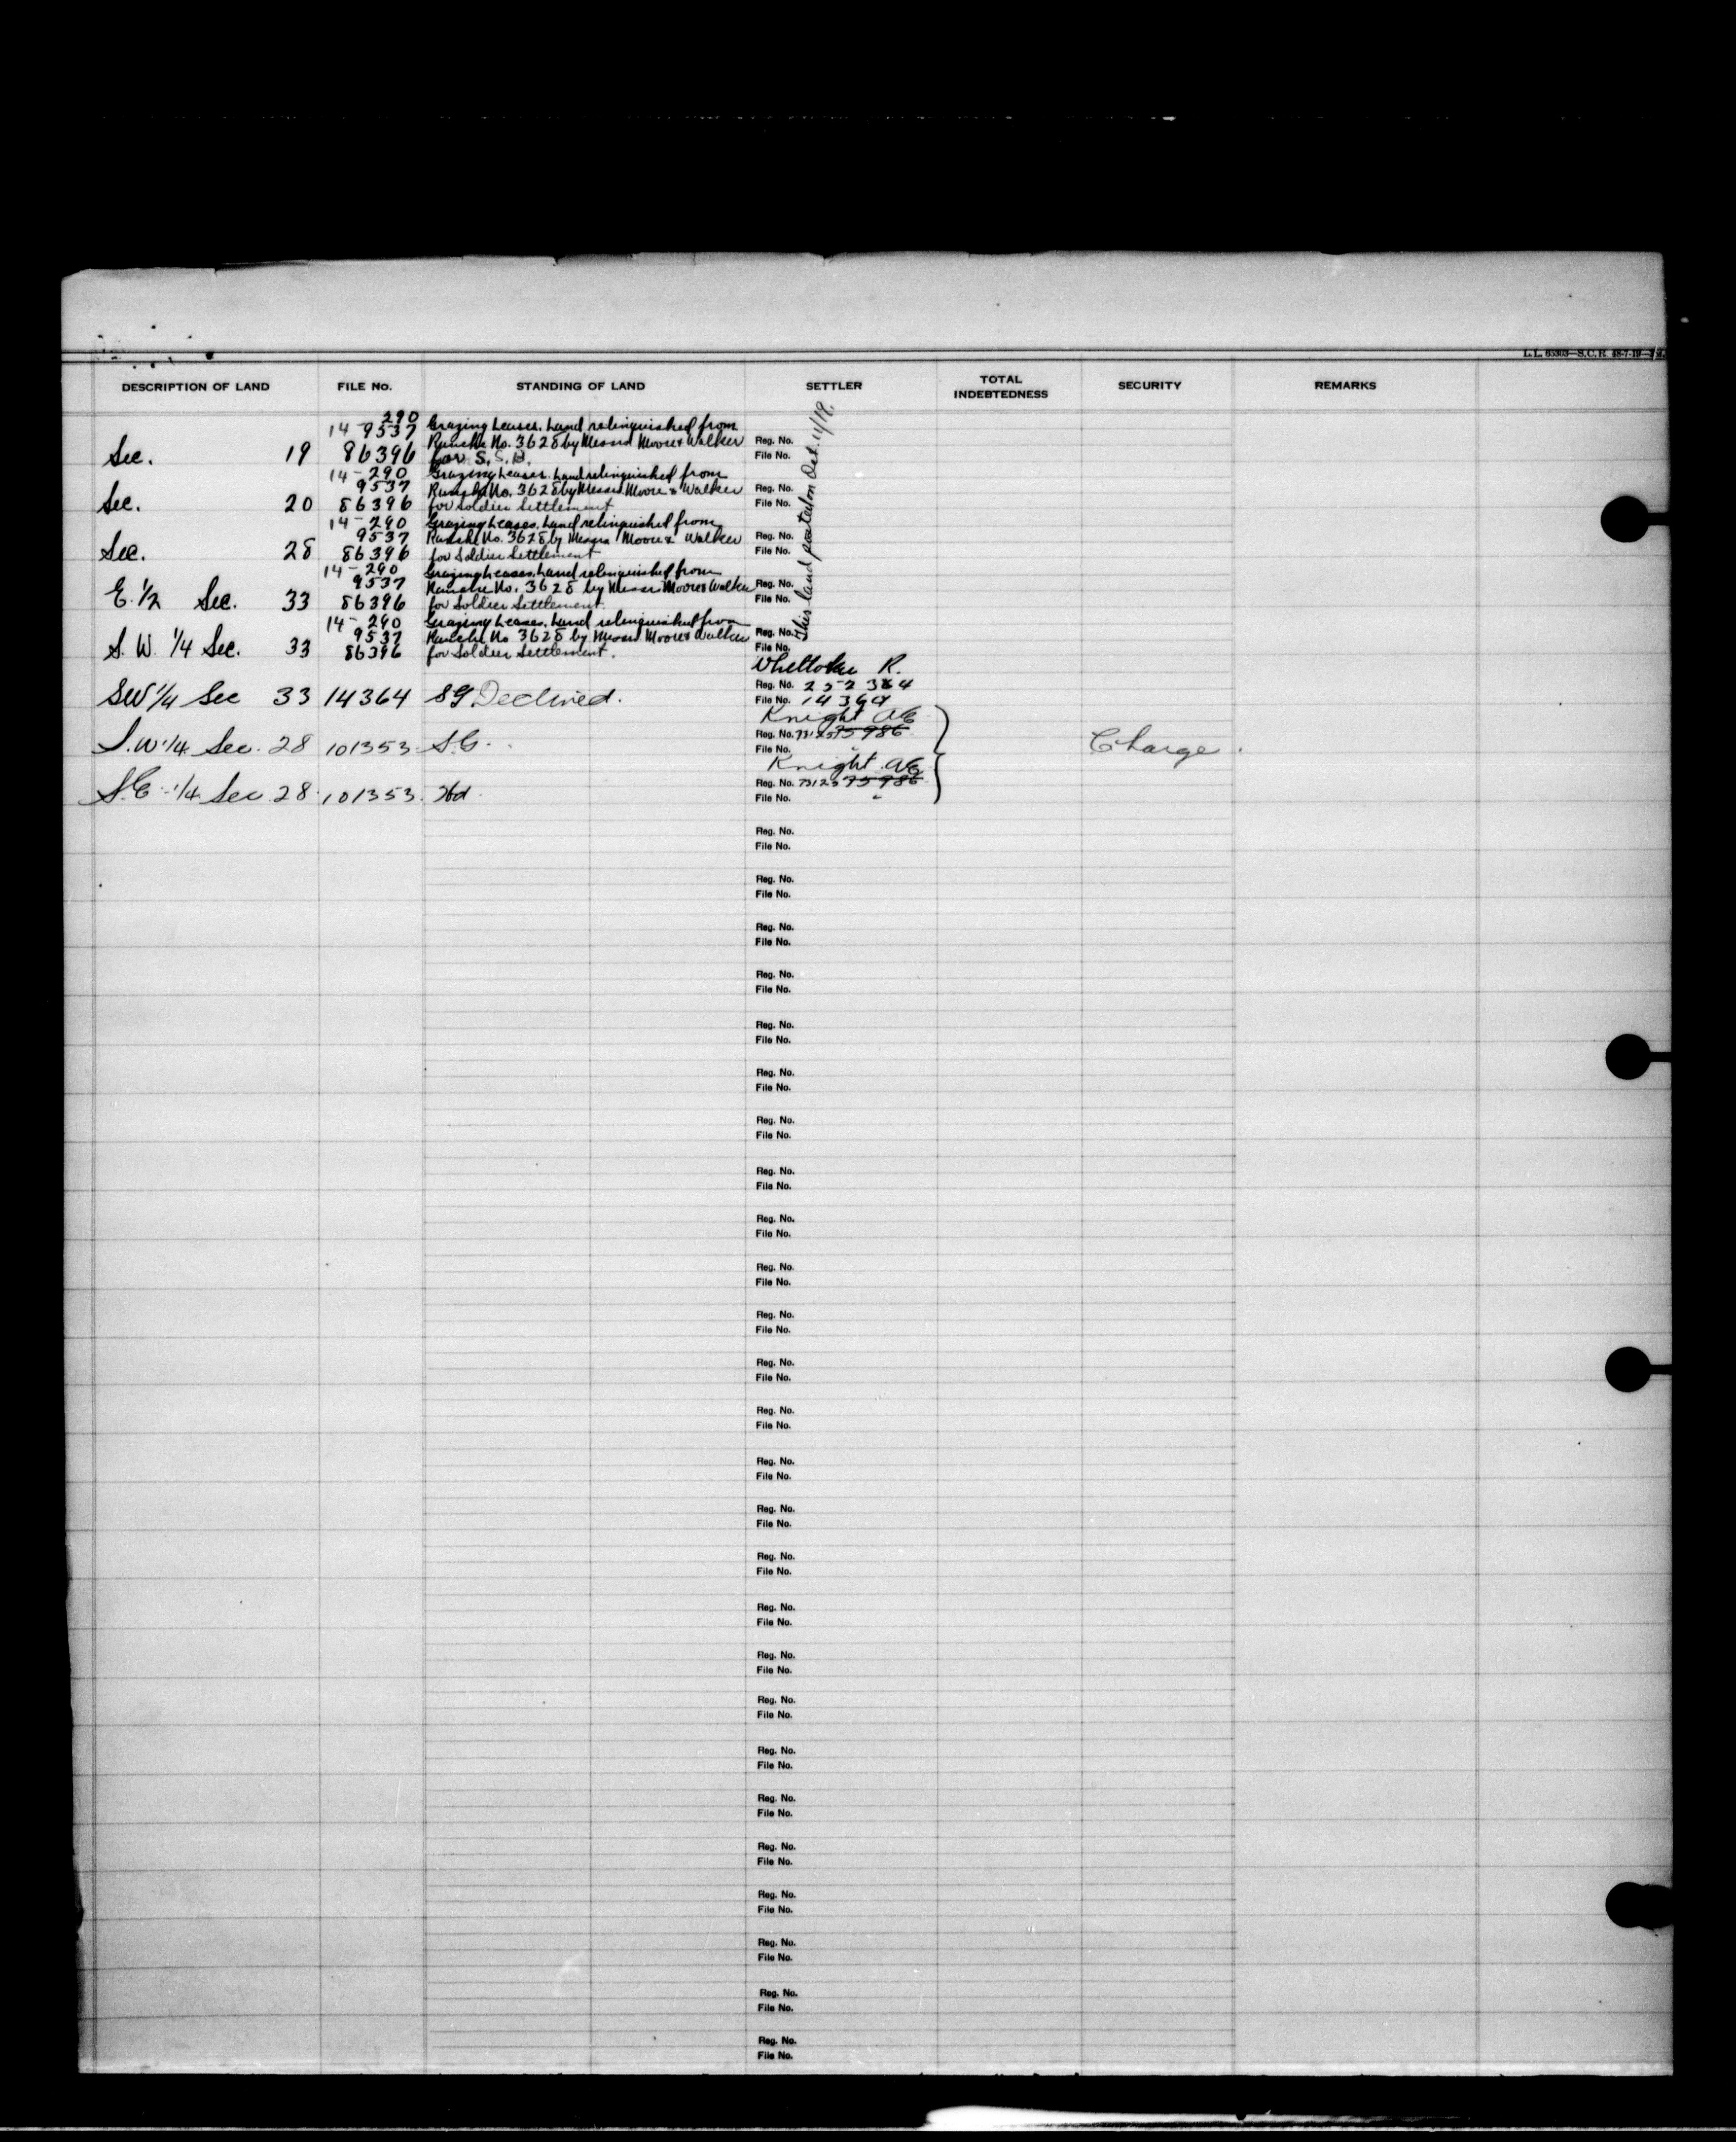 L.L. 65303—S.C.R. 48-7-19—
DESCRIPTION OF LAND FILE No. STANDING OF LAND SETTLER TOTAL INDEBTEDNESS SECURITY REMARKS
This land posted on Oct. 11/19.
14-290 Grazing Leases. Land relinquished from
9537 Ranche No. 3628 by Messrs Moore & Walker Reg. No.
Sec. 19 86396 for S. S. B. File No.
14-290 Grazing Leases. Land relinquished from
9537 Ranche No. 3628 by Messrs Moore & Walker Reg. No.
Sec. 20 86396 for Soldier Settlement File No.
14-290 Grazing Leases. Land relinquished from
9537 Ranche No. 3628 by Messrs Moore & Walker Reg. No.
Sec. 28 86396 for Soldier Settlement File No.
14-290 Grazing Leases. Land relinquished from
9537 Ranche No. 3628 by Messrs Moore & Walker Reg. No.
E. 1/2 Sec. 33 86396 for Soldier Settlement. File No.
14-290 Grazing Leases. Land relinquished from
9537 Ranche No 3628 by Messrs Moore & Walker Reg. No.
S. W. 1/4 Sec. 33 86396 for Soldier Settlement. File No.
R.
Reg. No. 252384
SW 1/4 Sec 33 14364 SG Declined. File No. 14364
Knight AE
Reg. No. 73125 75986
S.W. 1/4 Sec. 28 101353 S.G. File No. Charge.
Knight AE
Reg. No. 73125 75986
S.E. 1/4 Sec 28 101353. File No. "
Reg. No.
File No.
Reg. No.
File No.
Reg. No.
File No.
Reg. No.
File No.
Reg. No.
File No.
Reg. No.
File No.
Reg. No.
File No.
Reg. No.
File No.
Reg. No.
File No.
Reg. No.
File No.
Reg. No.
File No.
Reg. No.
File No.
Reg. No.
File No.
Reg. No.
File No.
Reg. No.
File No.
Reg. No.
File No.
Reg. No.
File No.
Reg. No.
File No.
Reg. No.
File No.
Reg. No.
File No.
Reg. No.
File No.
Reg. No.
File No.
Reg. No.
File No.
Reg. No.
File No.
Reg. No.
File No.
Reg. No.
File No.